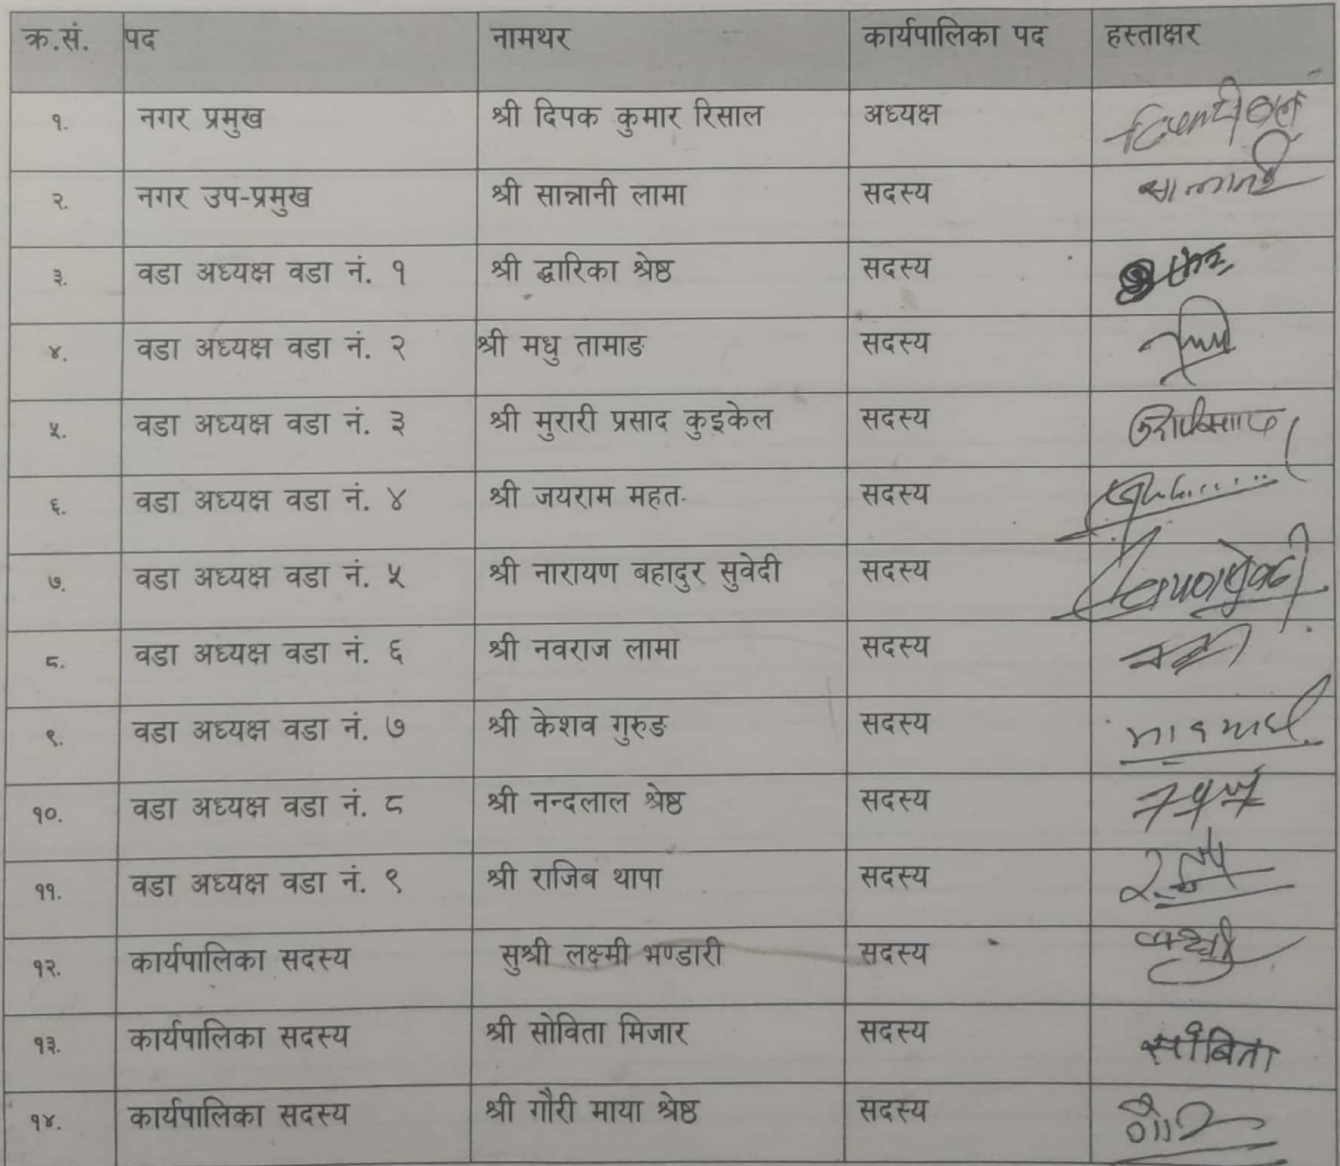 क्र.सं. पद नामथर कार्यपालिका पद हस्ताक्षर
१. नगर प्रमुख श्री दिपक कुमार रिसाल अध्यक्ष
२. नगर उप-प्रमुख श्री सान्नानी लामा सदस्य
३. वडा अध्यक्ष वडा नं. १ श्री द्धारिका श्रेष्ठ सदस्य
४. वडा अध्यक्ष वडा नं. २ श्री मधु तामाङ सदस्य
५. वडा अध्यक्ष वडा नं. ३ श्री मुरारी प्रसाद कुइकेल सदस्य
६. वडा अध्यक्ष वडा नं. ४ श्री जयराम महत सदस्य
७. वडा अध्यक्ष वडा नं. ५ श्री नारायण बहादुर सुवेदी सदस्य
८. वडा अध्यक्ष वडा नं. ६ श्री नवराज लामा सदस्य
९. वडा अध्यक्ष वडा नं. ७ श्री केशव गुरुङ सदस्य
१०. वडा अध्यक्ष वडा नं. ८ श्री नन्दलाल श्रेष्ठ सदस्य
११. वडा अध्यक्ष वडा नं. ९ श्री राजिब थापा सदस्य
१२. कार्यपालिका सदस्य सुश्री लक्ष्मी भण्डारी सदस्य
१३. कार्यपालिका सदस्य श्री सोविता मिजार सदस्य सोबिता
१४. कार्यपालिका सदस्य श्री गौरी माया श्रेष्ठ सदस्य